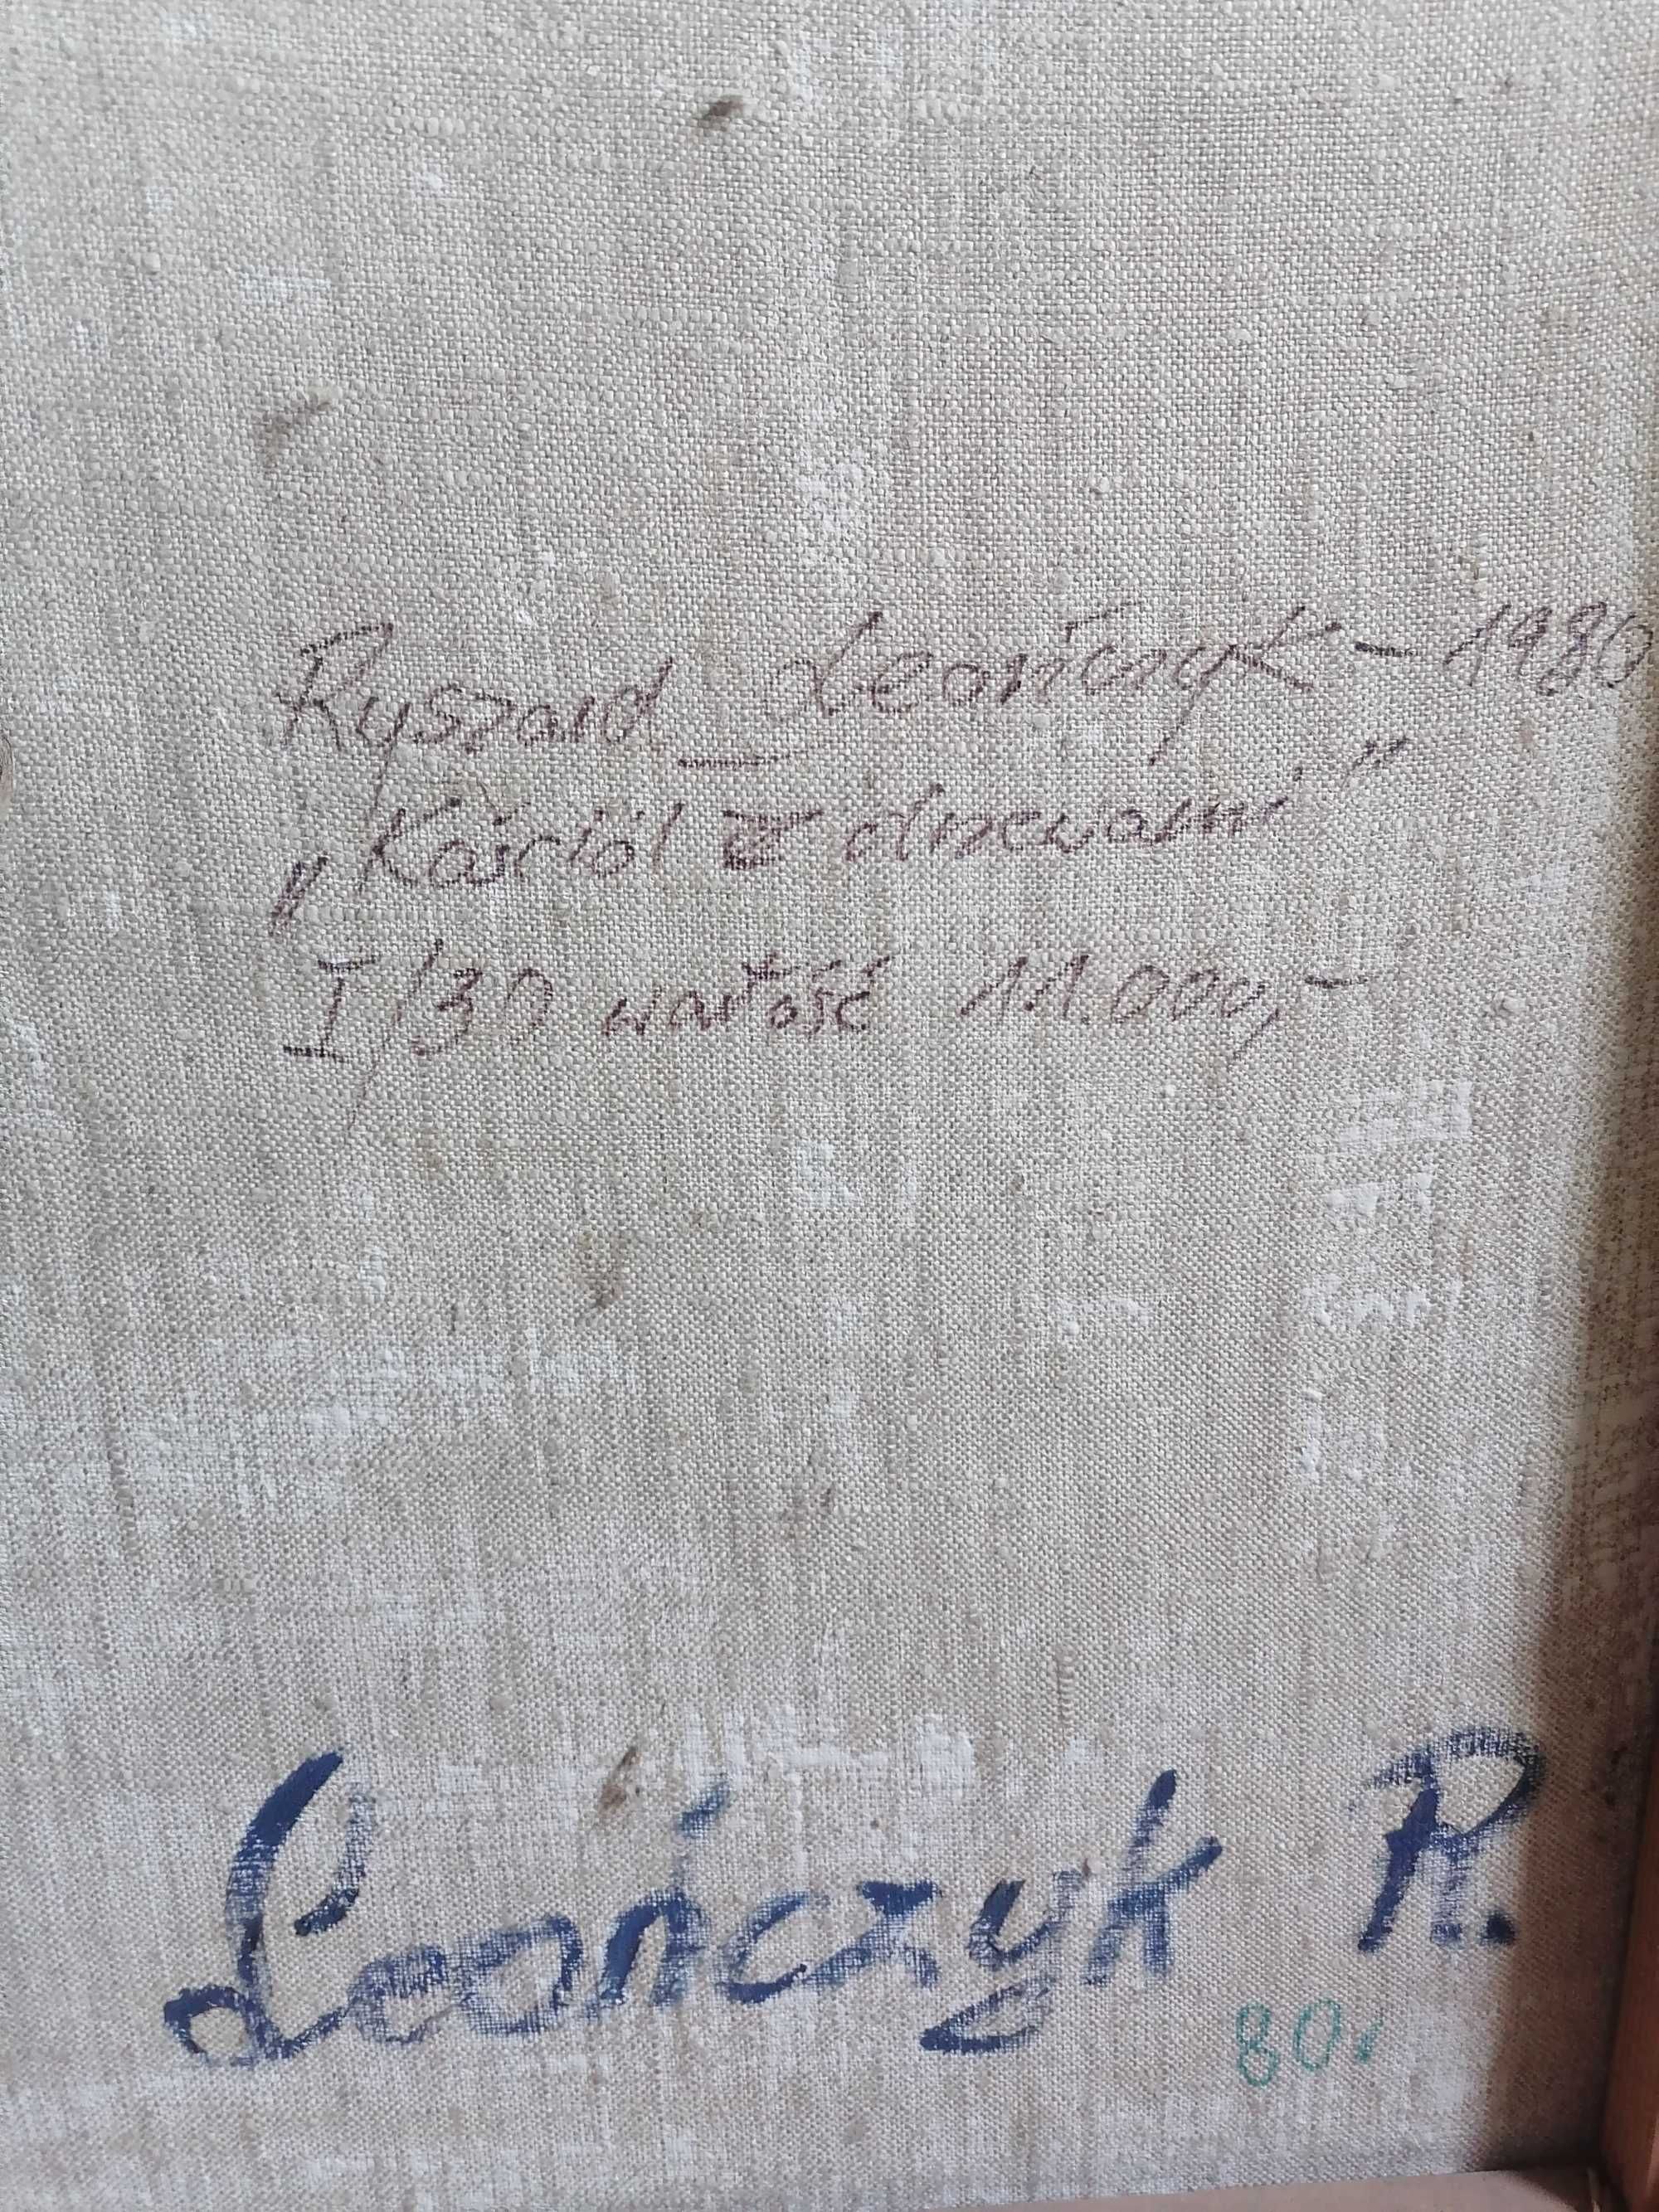 Ryszard Leończyk - 1980
„Kościół z drzewami”
I/30 wartość 11.000,-
Leończyk R.
80.